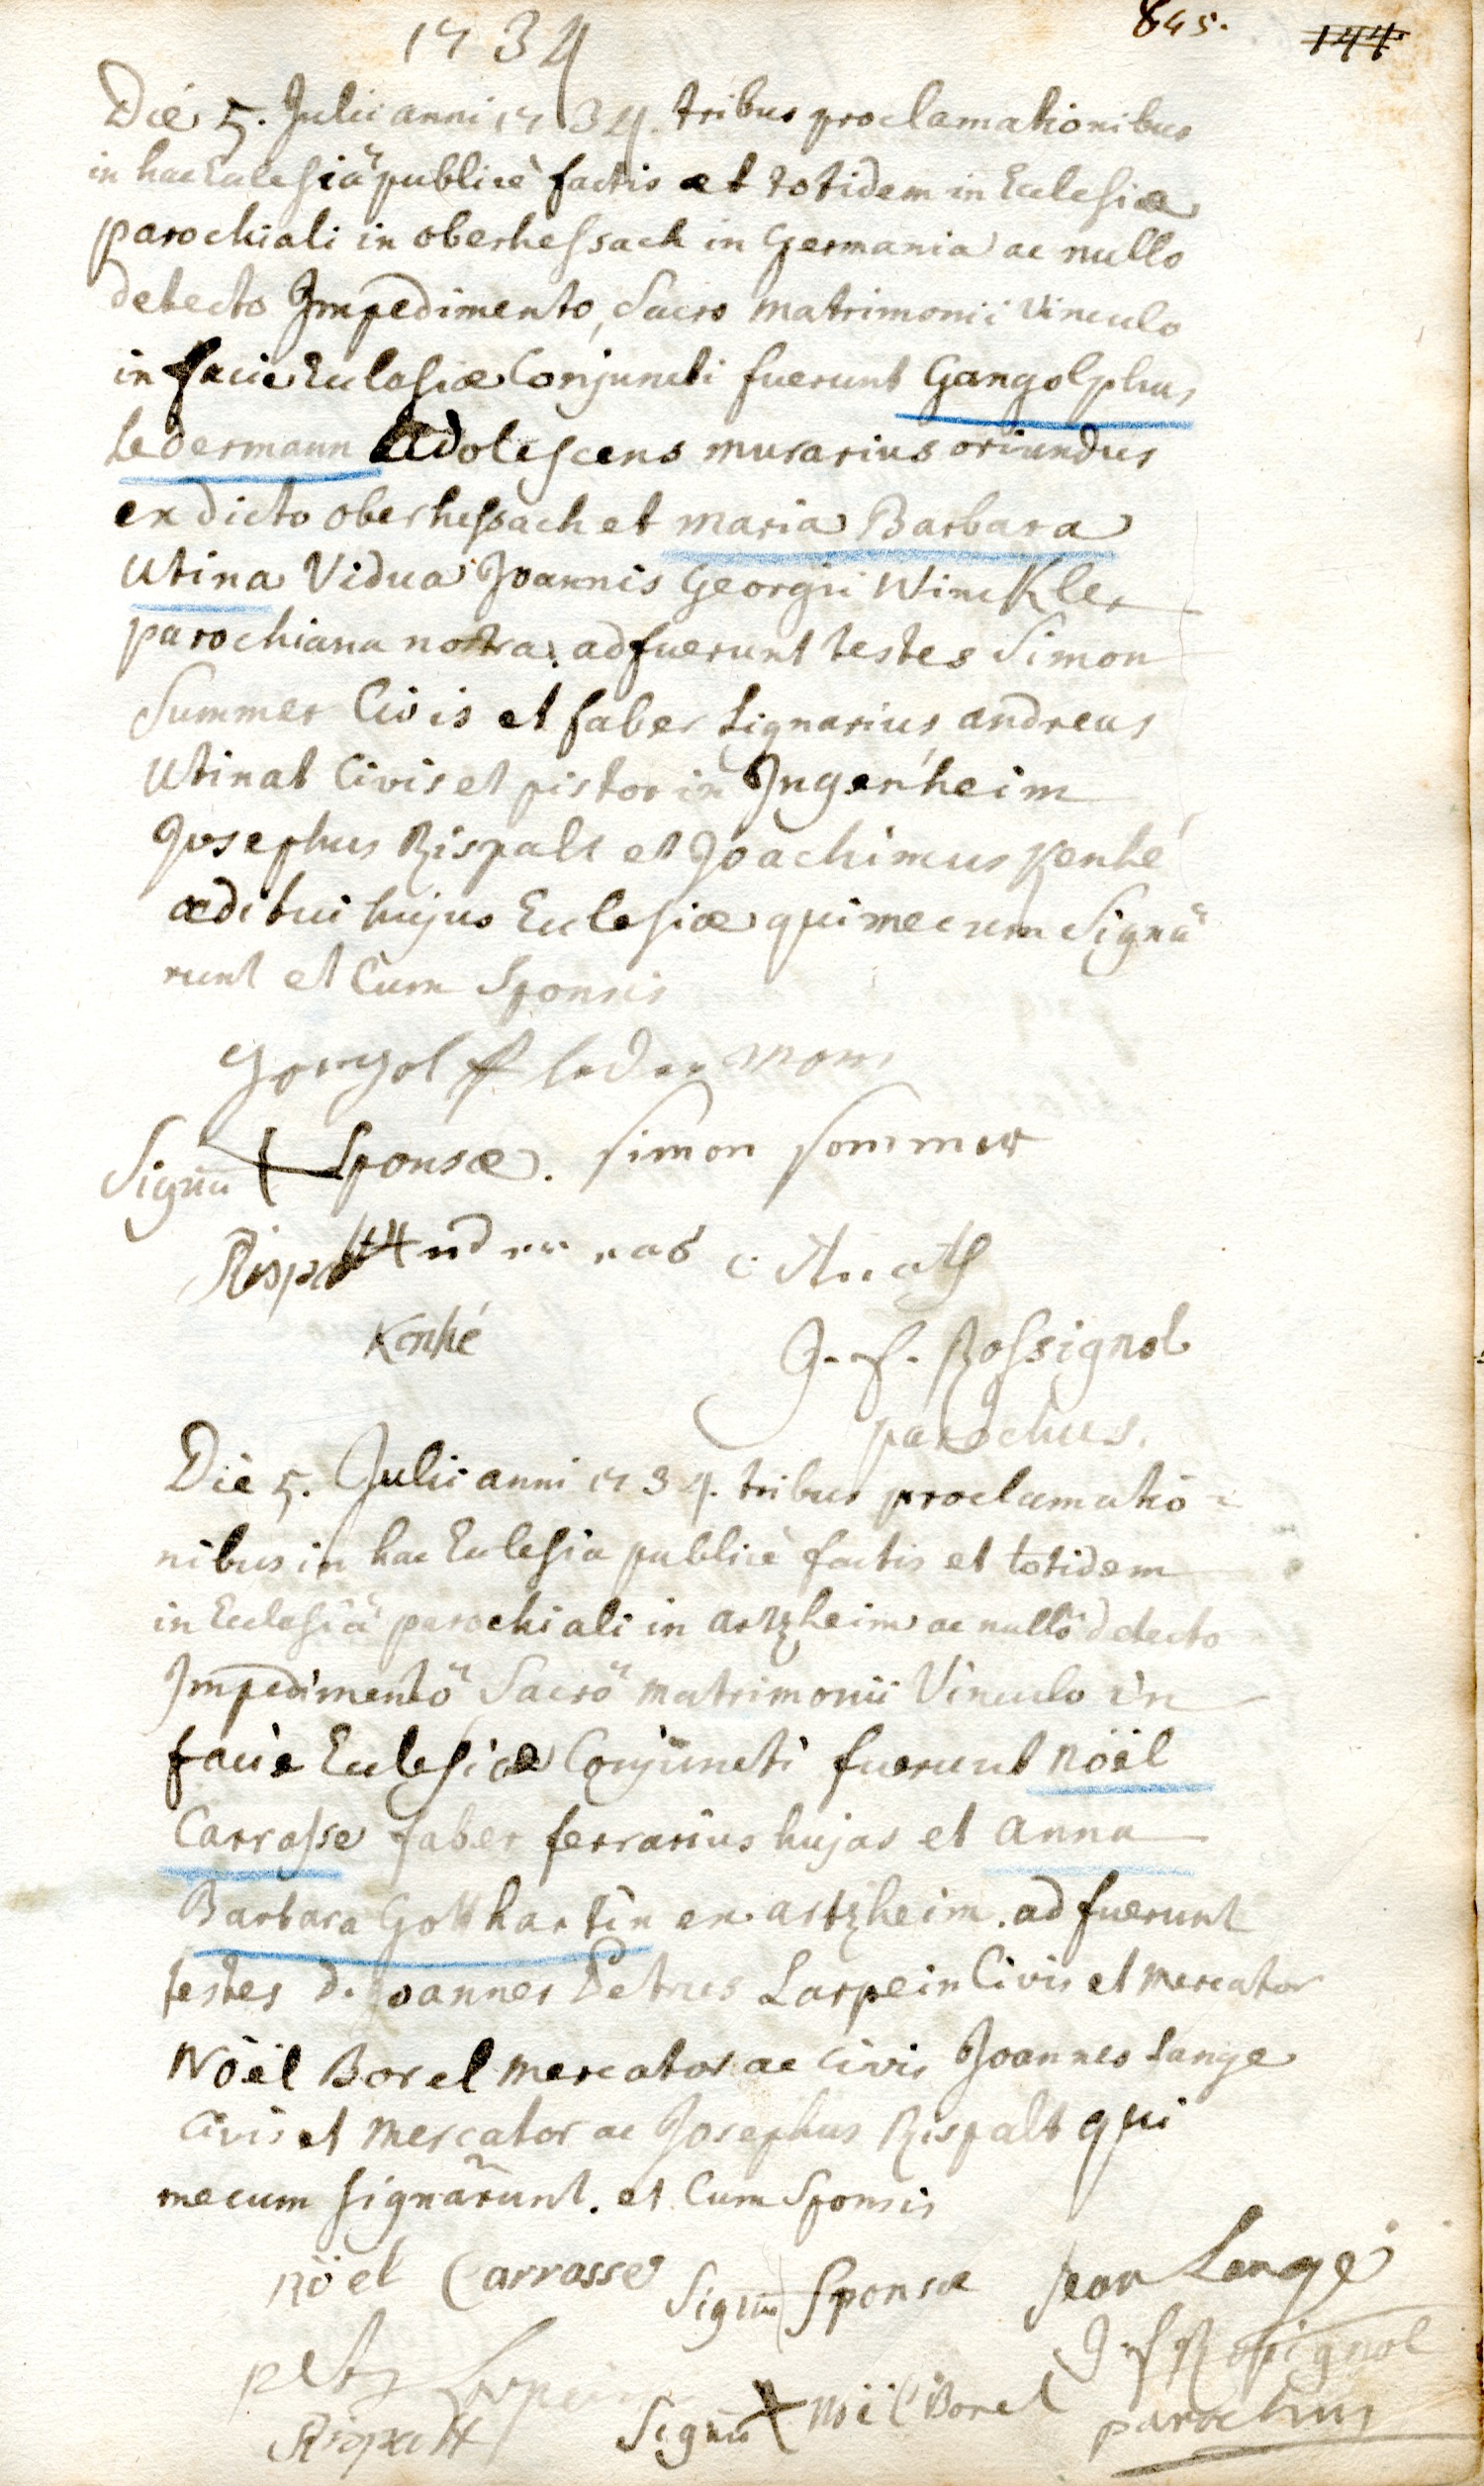 1734
845.
144
Die 5. Julii anni 1734. tribus proclamationibus
in hac Ecclesiâ publicè factis et totidem in Ecclesia
parochiali in oberhessach in Germania ac nullo
detecto Impedimento, Sacro matrimonii Vinculo
in facie Ecclesiæ Conjuncti fuerunt Gangolphus
Ledermann adolescens murarius oriundus
ex dicto oberhessach et maria Barbara
Utina Vidua Joannis Georgii Winckler
parochiana nostra. adfuerunt testes Simon
Summer Civis et faber Lignarius, andreas
Utinat Civis et pistor in Ingenheim
Josephus Rispalt et Joachimus Kenhé
æditui hujus Ecclesiæ qui mecum Signâ
runt et Cum Sponsis
gongolf ledermom
Signū + Sponsæ. simon sommer
Rispalt
Kenhé
J. f. Rossignol
parochus.
Die 5. Julii anni 1734. tribus proclamatio-
nibus in hac Ecclesia publicè factis et totidem
in Ecclesiâ parochiali in artzheim ac nullô detecto
Impedimentô Sacrô matrimonii Vinculo in
facie Ecclesiæ Conjuncti fuerunt nöel
Carrasse faber ferrarius hujas et anna
Barbara Gotthartin ex artzheim. adfuerunt
testes d. Joannes Petrus Larpein Civis et mercator
Nöel Borel mercator ac Civis Joannes Lange
Civis et mercator ac Josephus Rispalt qui
mecum signârunt. et Cum Sponsis
nöel Carrasse Signū + Sponsæ Jean Lange
J. f. Rossignol
Rispalt Signū + nöel Borel parochus